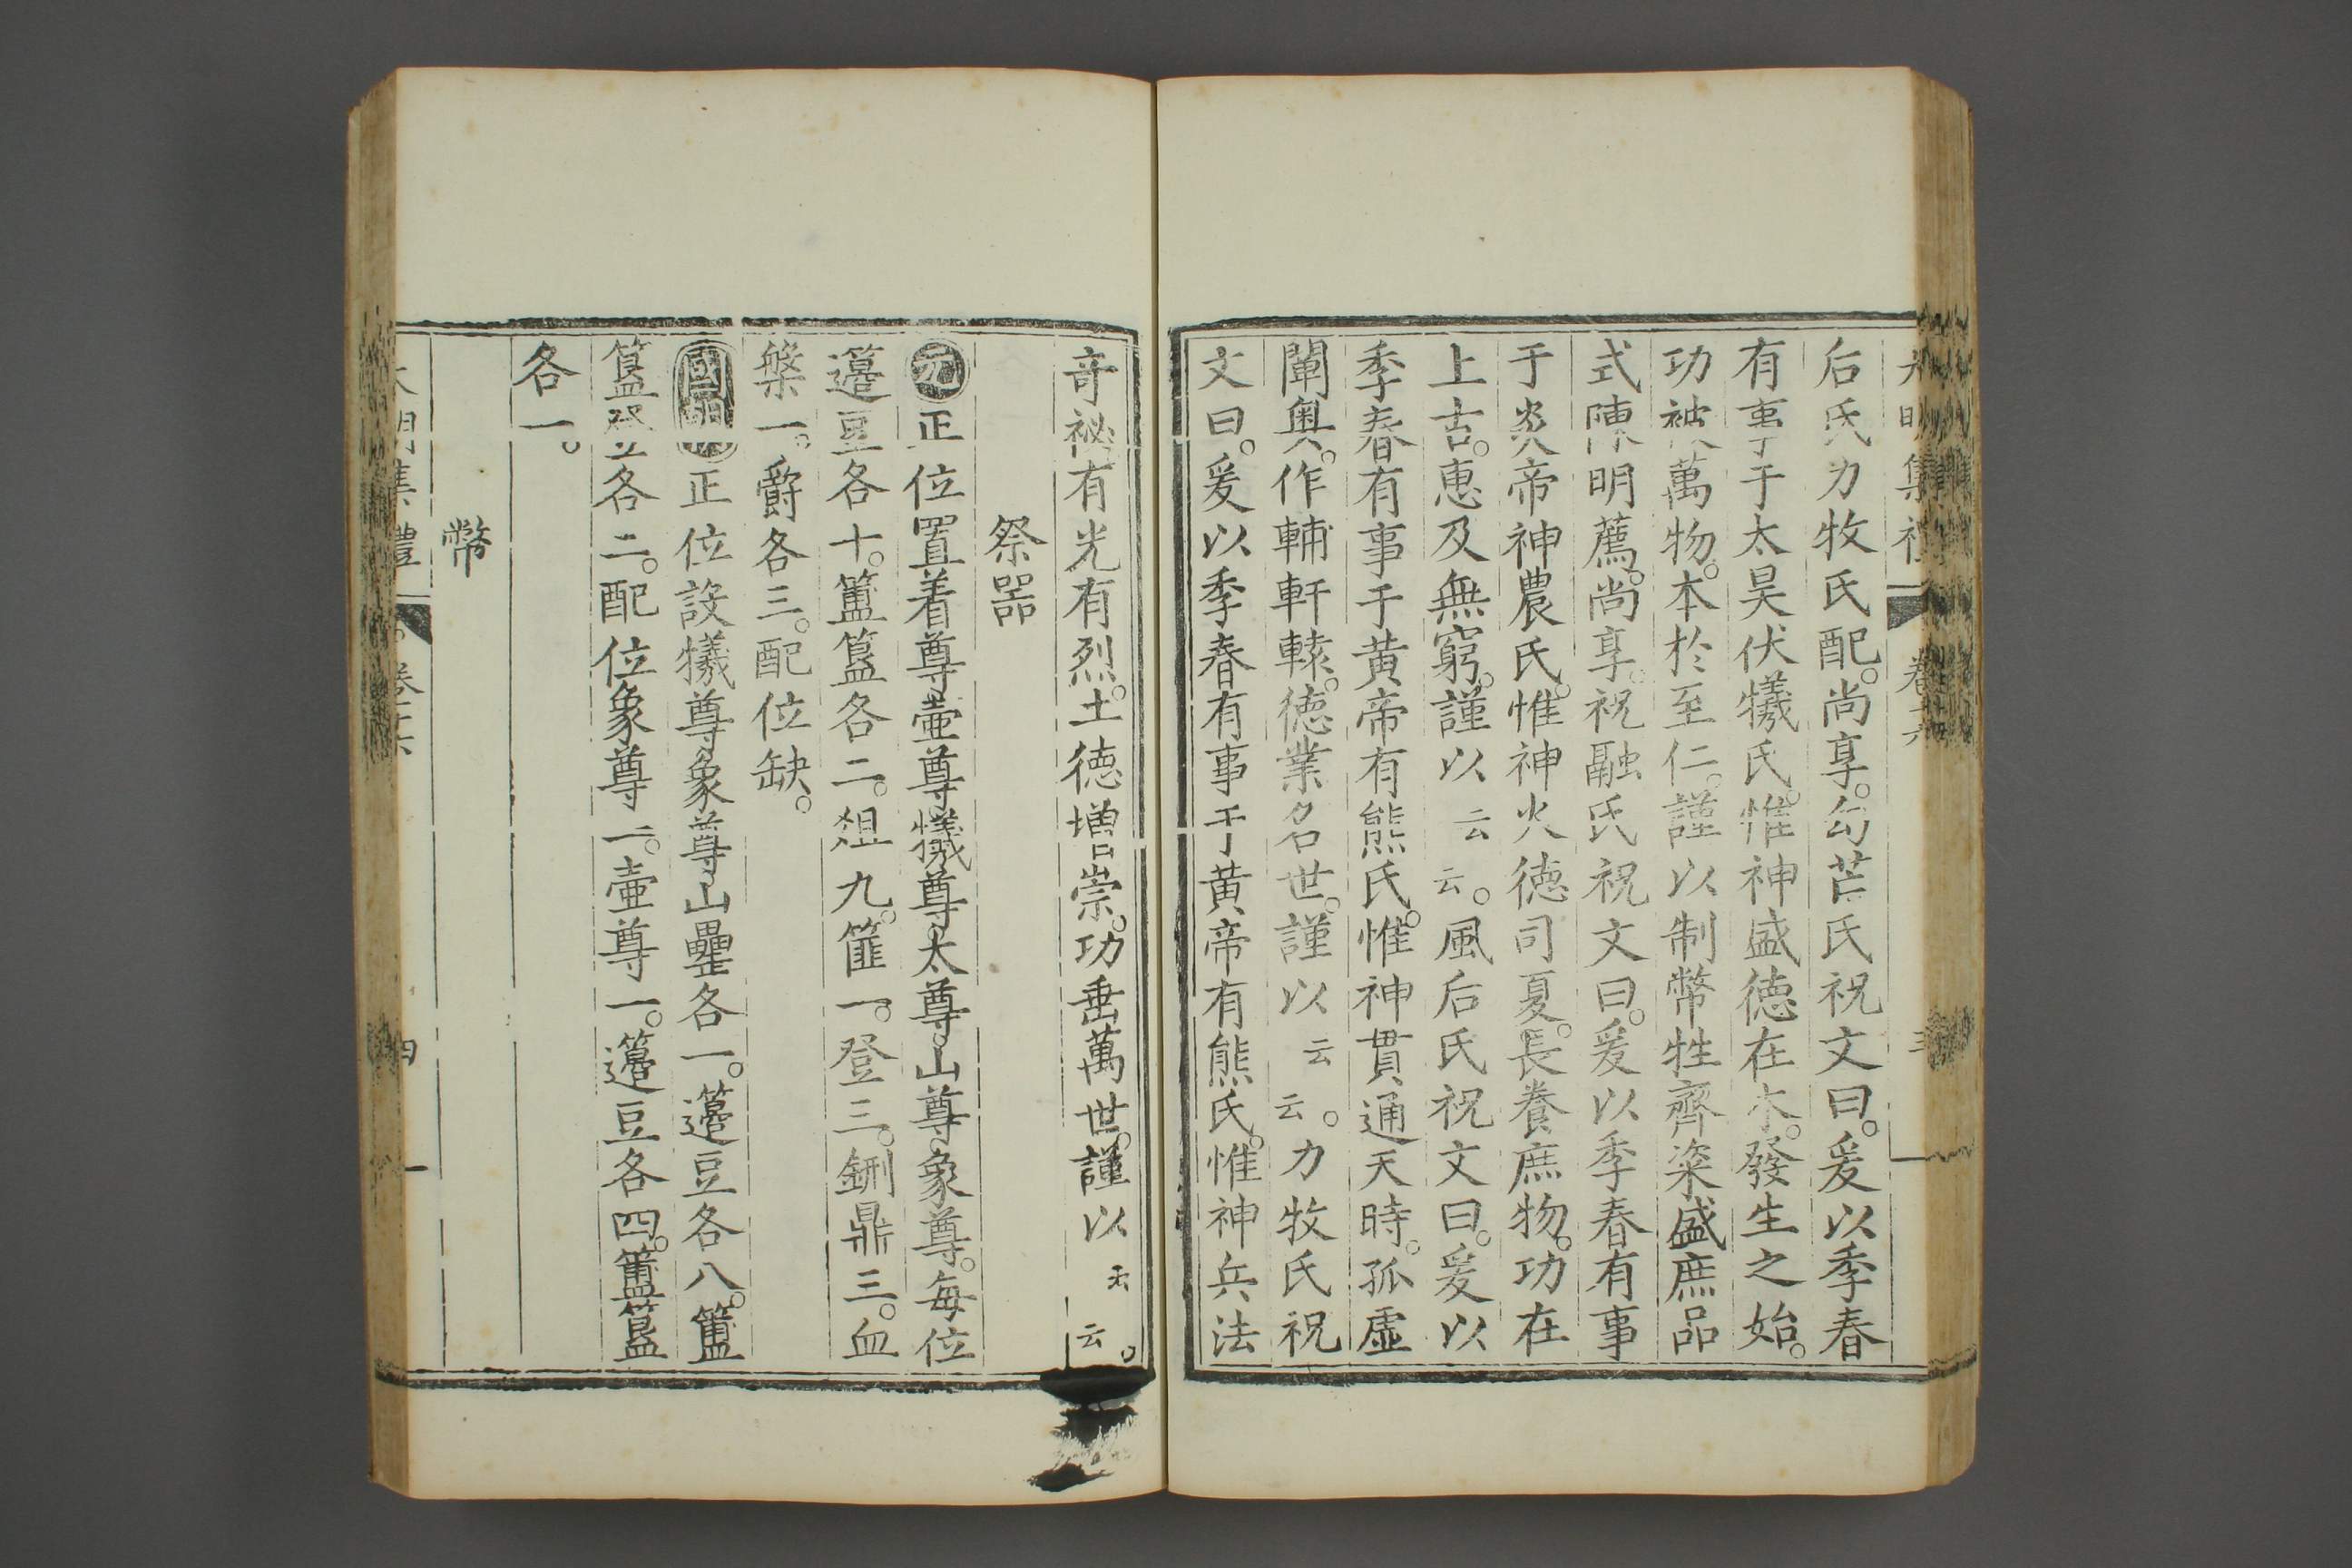 大明集禮 卷十六 三
后氏力牧氏配。尚享。勾芒氏祝文曰。爰以季春
有事于太昊伏犧氏。惟神盛德在木。發生之始。
功被萬物。本於至仁。謹以制幣牲齊粢盛庶品
式陳明薦。尚享。祝融氏祝文曰。爰以季春有事
于炎帝神農氏。惟神火德司夏。長養庶物。功在
上古。惠及無窮。謹以云云。風后氏祝文曰。爰以
季春有事于黄帝有熊氏。惟神貫通天時。孤虛
闡奥。作輔軒轅。德業名世。謹以云云。力牧氏祝
文曰。爰以季春有事于黄帝有熊氏。惟神兵法
竒祕。有光有烈。土德増崇。功垂萬世。謹以云云。
祭器
元正位置着尊壷尊犧尊太尊山尊象尊。每位
籩豆各十。簠簋各二。俎九。篚一。登三。鉶鼎三。血
槃一。爵各三。配位缺。
國朝正位設犧尊象尊山罍各一。籩豆各八。簠
簋登各二。配位象尊一。壷尊一。籩豆各四。簠簋
各一。
幣
大明集禮 卷十六 四